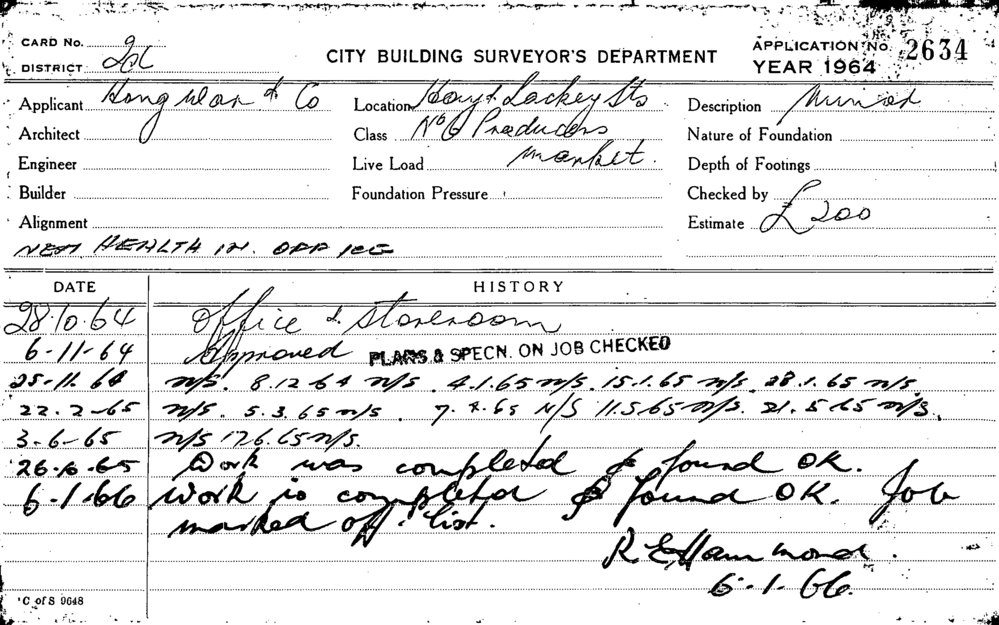 CARD No. 2
DISTRICT
CITY BUILDING SURVEYOR'S DEPARTMENT
APPLICATION No. 2634
YEAR 1964
Applicant Hong & Co
Location Hay & Lackey Sts
Description Minor
Architect
Class No 6 Producers
Nature of Foundation
Engineer
Live Load market.
Depth of Footings
Builder
Foundation Pressure
Checked by
Alignment
Estimate £200
HEALTH IN. OFFICE
DATE
HISTORY
28.10.64 Office & Storeroom
6-11-64 Approved PLANS & SPECN. ON JOB CHECKED
25-11.64 n/s. 8.12.64 n/s. 4.1.65 n/s. 15.1.65 n/s. 28.1.65 n/s.
22.2-65 n/s. 5.3.65 n/s. 7.4.65 N/S 11.5.65 n/s. 21.5.65 n/s.
3-6-65 n/s 17.6.65 n/s.
65 Work was completed & found OK.
6-1-66 Work is completed & found OK. Job
marked off list.
R E Hammond.
6-1.66.
C of S 9648